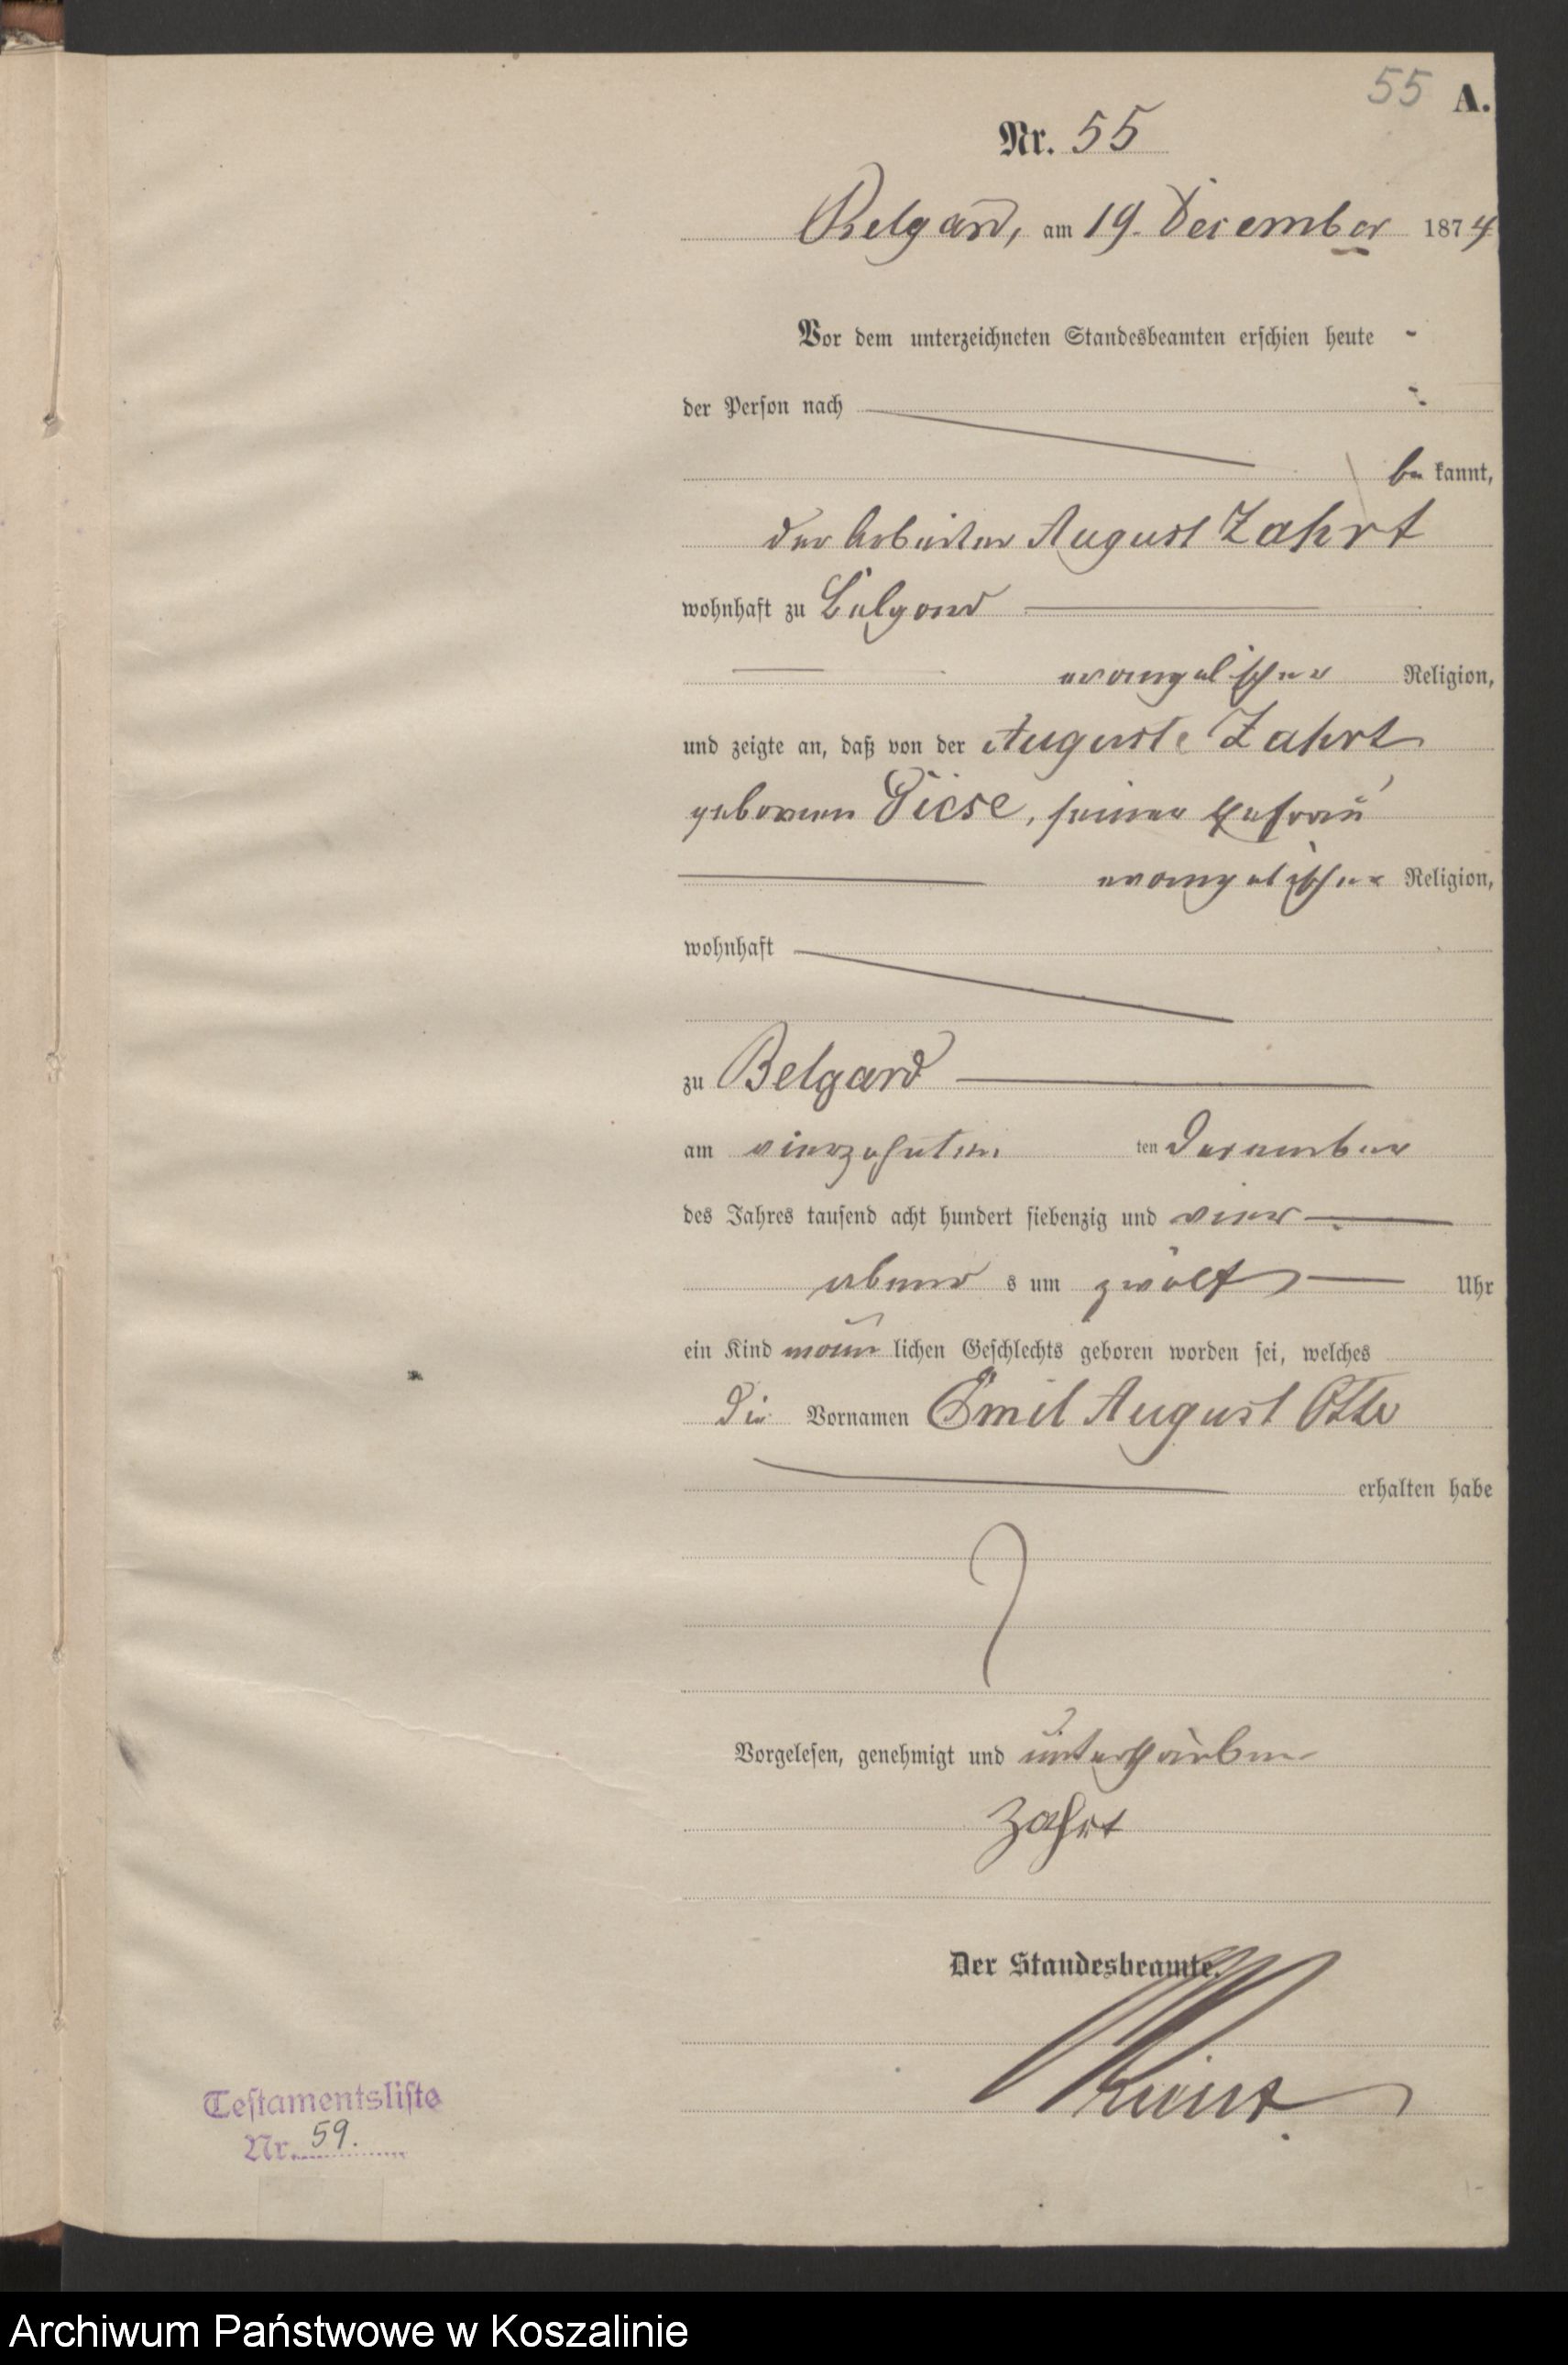 55 A.
Nr. 55
Belgard, am 19. December 1874
Vor dem unterzeichneten Standesbeamten erschien heute
der Person nach
bekannt,
der Arbeiter August Zahrt
wohnhaft zu Belgard
evangelischer Religion,
und zeigte an, daß von der Auguste Zahrt
geborenen Giese, seiner Ehefrau
evangelischer Religion,
wohnhaft
zu Belgard
am vierzehnten ten December
des Jahres tausend acht hundert siebenzig und vier
abend s um zwölf Uhr
ein Kind männlichen Geschlechts geboren worden sei, welches
die Vornamen Emil August Otto
erhalten habe
Vorgelesen, genehmigt und unterschrieben
Zahrt
Der Standesbeamte.
Testamentsliste
Nr. 59.
Archiwum Państwowe w Koszalinie